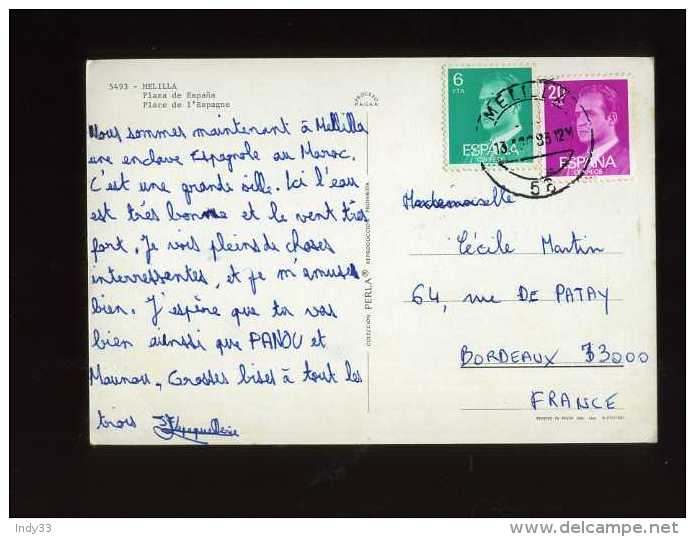 5493 - MELILLA
Plaza de España
Place de l'Espagne
6
PTA
ESPAÑA
CORREOS
20
ESPAÑA
CORREOS
MELILLA
52
Nous sommes maintenant à Mellilla
une enclave Espagnole au Maroc.
C'est une grande ville. Ici l'eau
est très bonne et le vent très
fort. Je vois pleins de choses
interressantes, et je m'amuse
bien. J'espère que tu vas
bien aussi que PANOU et
Maunou. Grosses bises à tout les
trois
COLECCION PERLA® REPRODUCCION PROHIBIDA
Mademoiselle
Cécile Martin
64, rue DE PATAY
BORDEAUX 33000
FRANCE
Indy33
delcampe.net